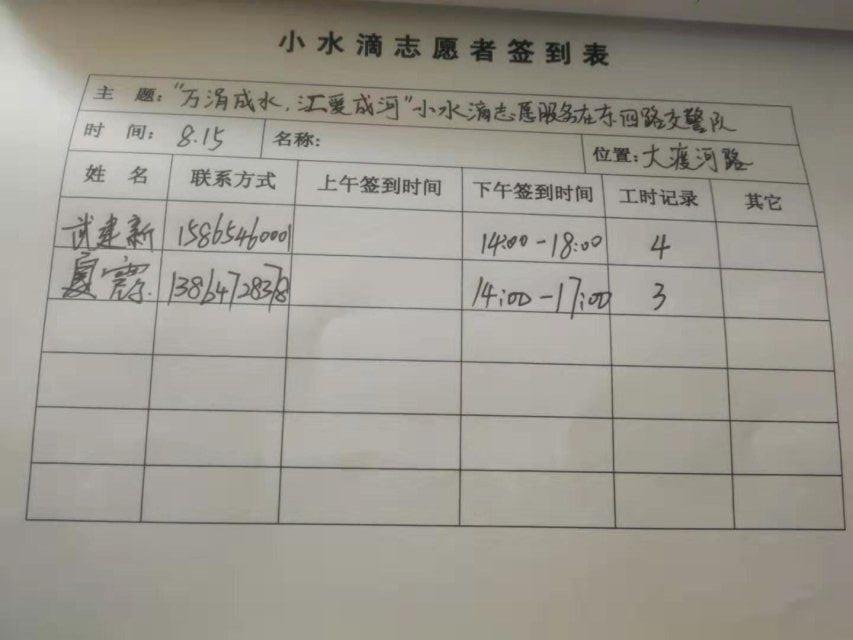 小水滴志愿者签到表
主 题：“万涓成水，汇爱成河”小水滴志愿服务在东四路交警队
时 间：8.15 名称： 位置：大渡河路
姓 名 联系方式 上午签到时间 下午签到时间 工时记录 其它
武建新 15865460001 14:00-18:00 4
夏霞 13864728378 14:00-17:00 3